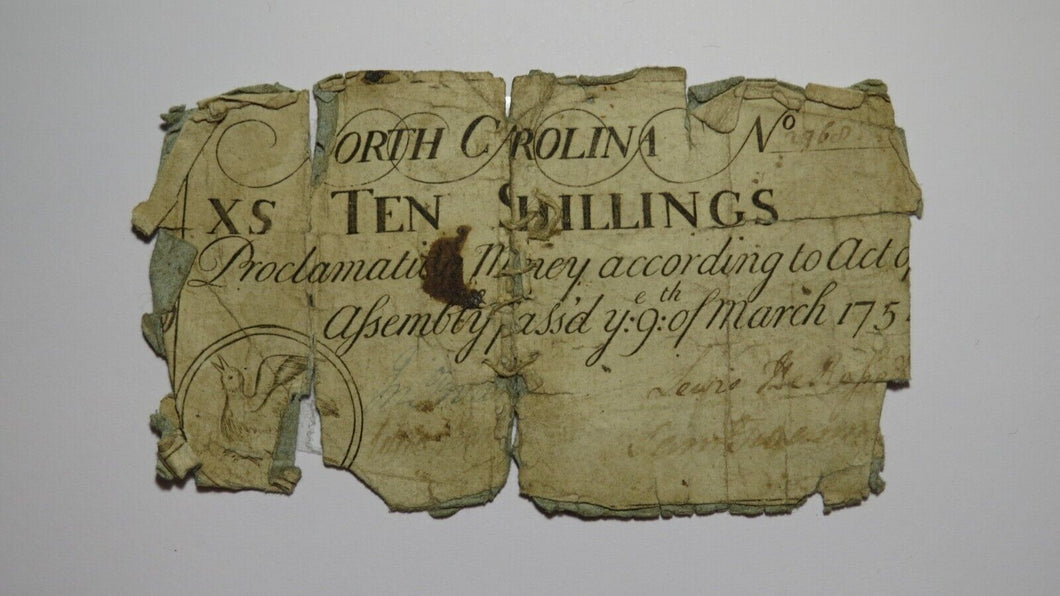 NORTH CAROLINA No 2768
XS TEN SHILLINGS
Proclamation Money according to Act of
Assembly pass'd y:e 9:th of March 175
Lewis De Ross